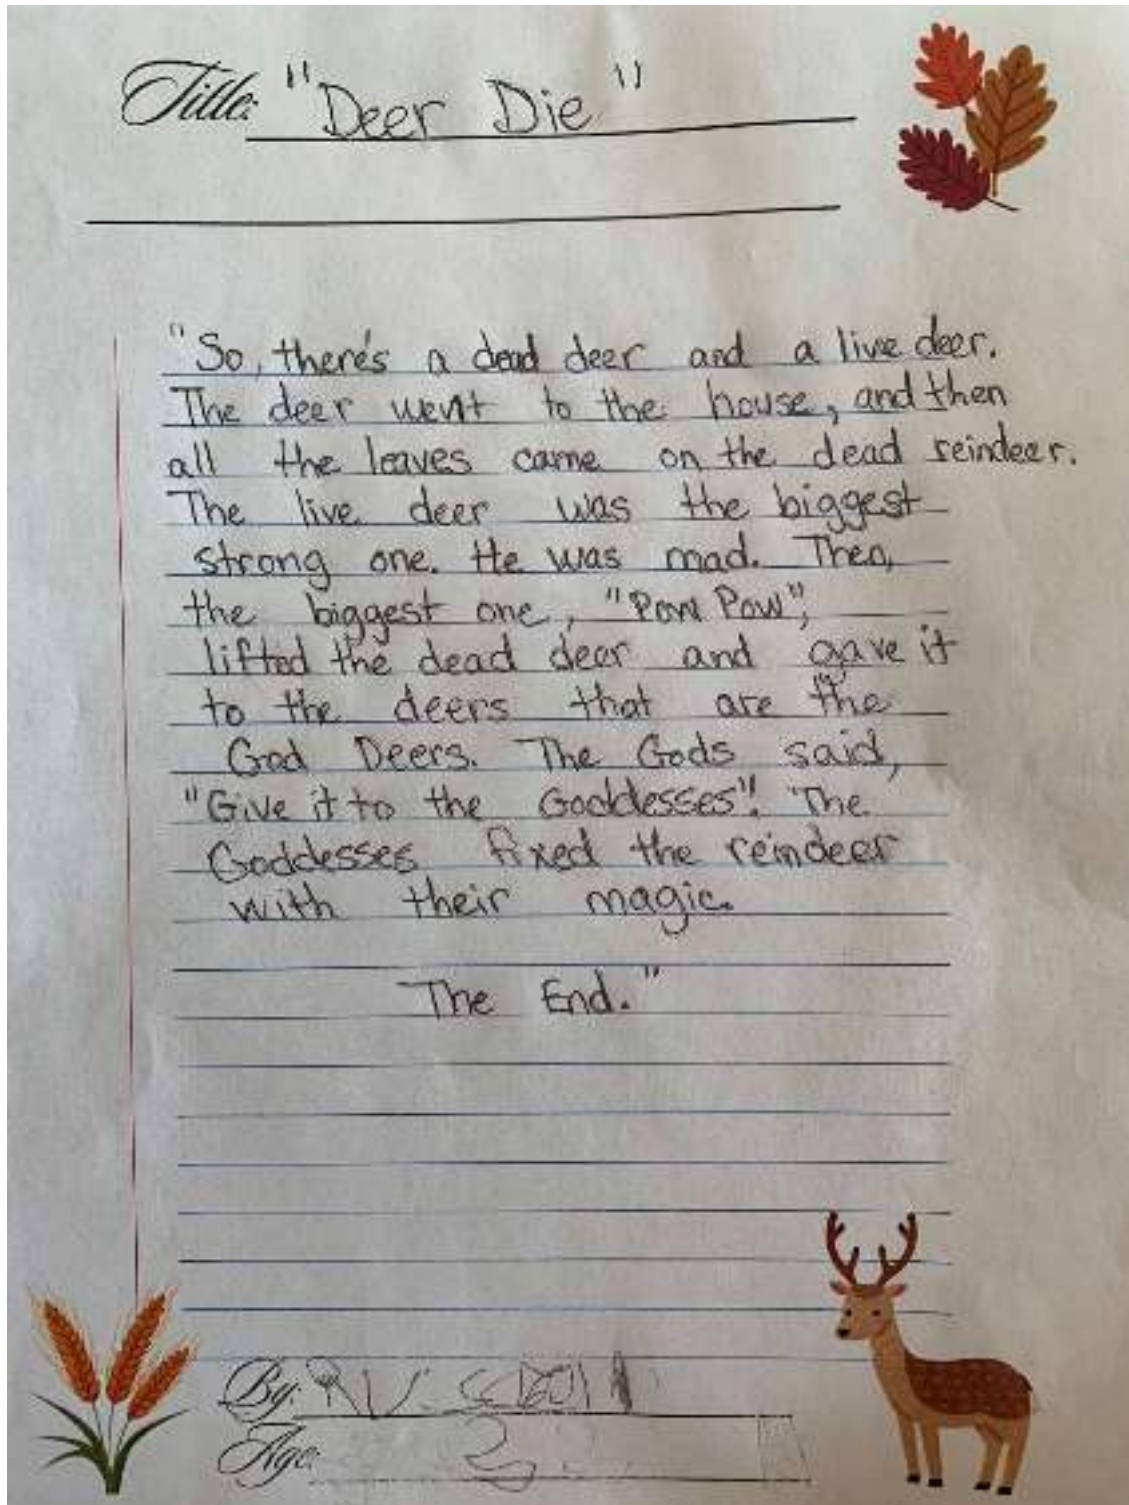 Title: "Deer Die"
"So, there's a dead deer and a live deer.
The deer went to the house, and then
all the leaves came on the dead reindeer.
The live deer was the biggest
strong one. He was mad. Then,
the biggest one, "Pow Pow",
lifted the dead deer and gave it
to the deers that are "the"
God Deers. The Gods said,
"Give it to the Goddesses". The
Goddesses fixed the reindeer
with their magic.
The End."
By:
Age: